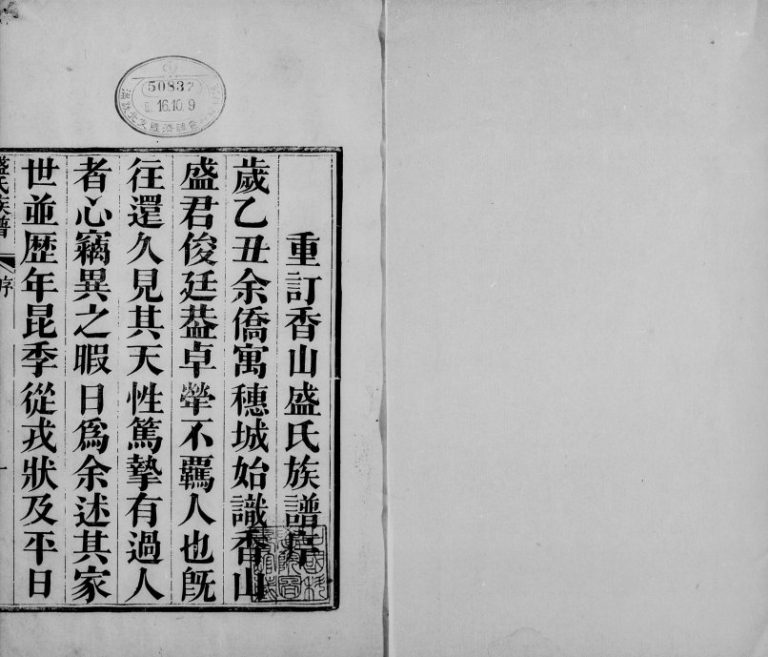 重訂香山盛氏族譜序
歲乙丑余僑寓穗城始識香山
盛君俊廷葢卓犖不羈人也旣
往還久見其天性篤摯有過人
者心竊異之暇日爲余述其家
世並歴年昆季從戎狀及平日
盛氏族譜
序
50832
16.10.9